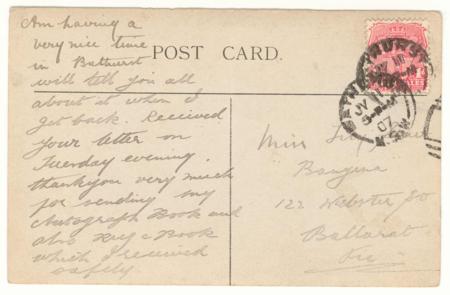 Am having a
very nice time
in Bathurst
will tell you all
about it when I
get back. Received
your letter on
Tuesday evening.
thankyou very much
for sending my
Autograph Book and
also Book
which I received
safely
POST CARD.
BATHURST
JY 11
07
N.S.W
Miss
122 Webster St
Ballarat
Vic